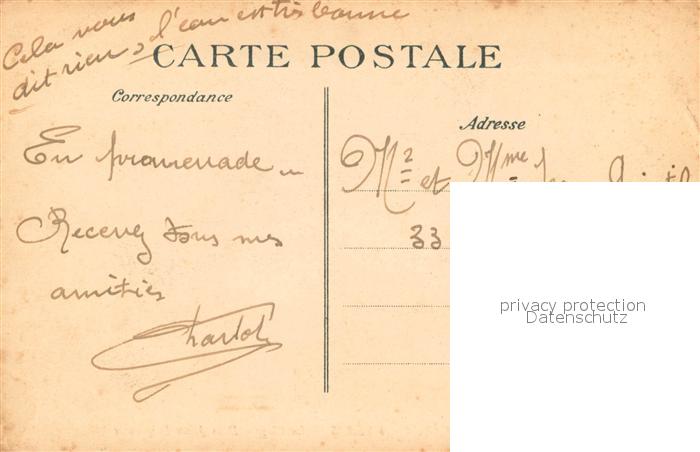 Cela vous
dit rien, l'eau est très bonne
CARTE POSTALE
Correspondance
Adresse
En promenade
Recevez tous mes
amitiés
Charlot
Mr et Mme
33
privacy protection
Datenschutz